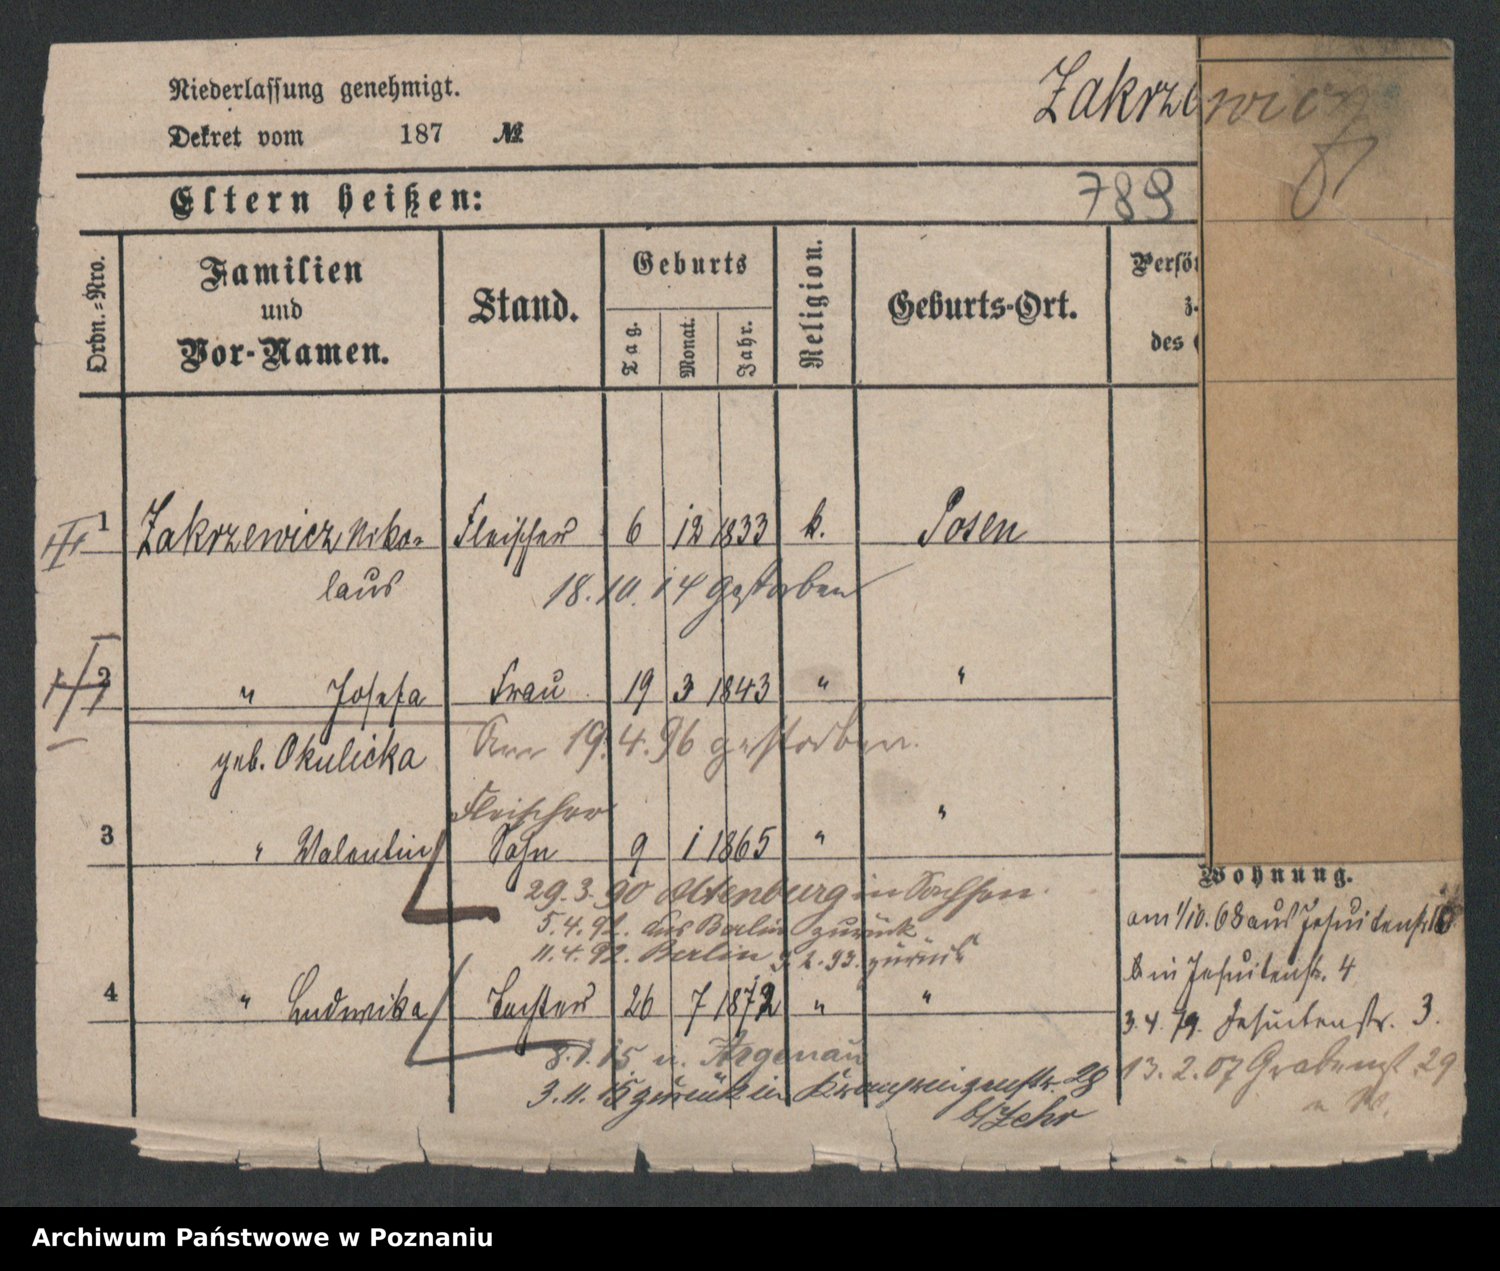 Niederlassung genehmigt.
Dekret vom 187 №
Zakrzewicz
789
Eltern heißen:
Ordn.=Nro.
Familien
und
Vor-Namen.
Stand.
Geburts
Tag.
Monat.
Jahr.
Religion.
Geburts-Ort.
Persö
z.
des
1 Zakrzewicz Niko- Fleischer 6 12 1833 k. Posen
laus
18.10.14 gestorben
2 " Josefa Frau 19 3 1843 " "
geb. Okulicka
Am 19.4.96 gestorben.
Fleischer
3 " Valentin Sohn 9 1 1865 " "
29.3.90 Altenburg in Sachsen.
5.4.92. aus Berlin zurück
11.4.92. Berlin 9.2.93. zurück
4 " Ludwika Tochter 26 7 1872 " "
8.1.15 n. Argenau
3.11.15 zurück in 28
b/Zehr
Wohnung.
am 1/10.68 aus Jesuitenstr.
in Jesuitenstr. 4
3.4.79. Jesuitenstr. 3.
13.2.07 Grabenst 29
Archiwum Państwowe w Poznaniu